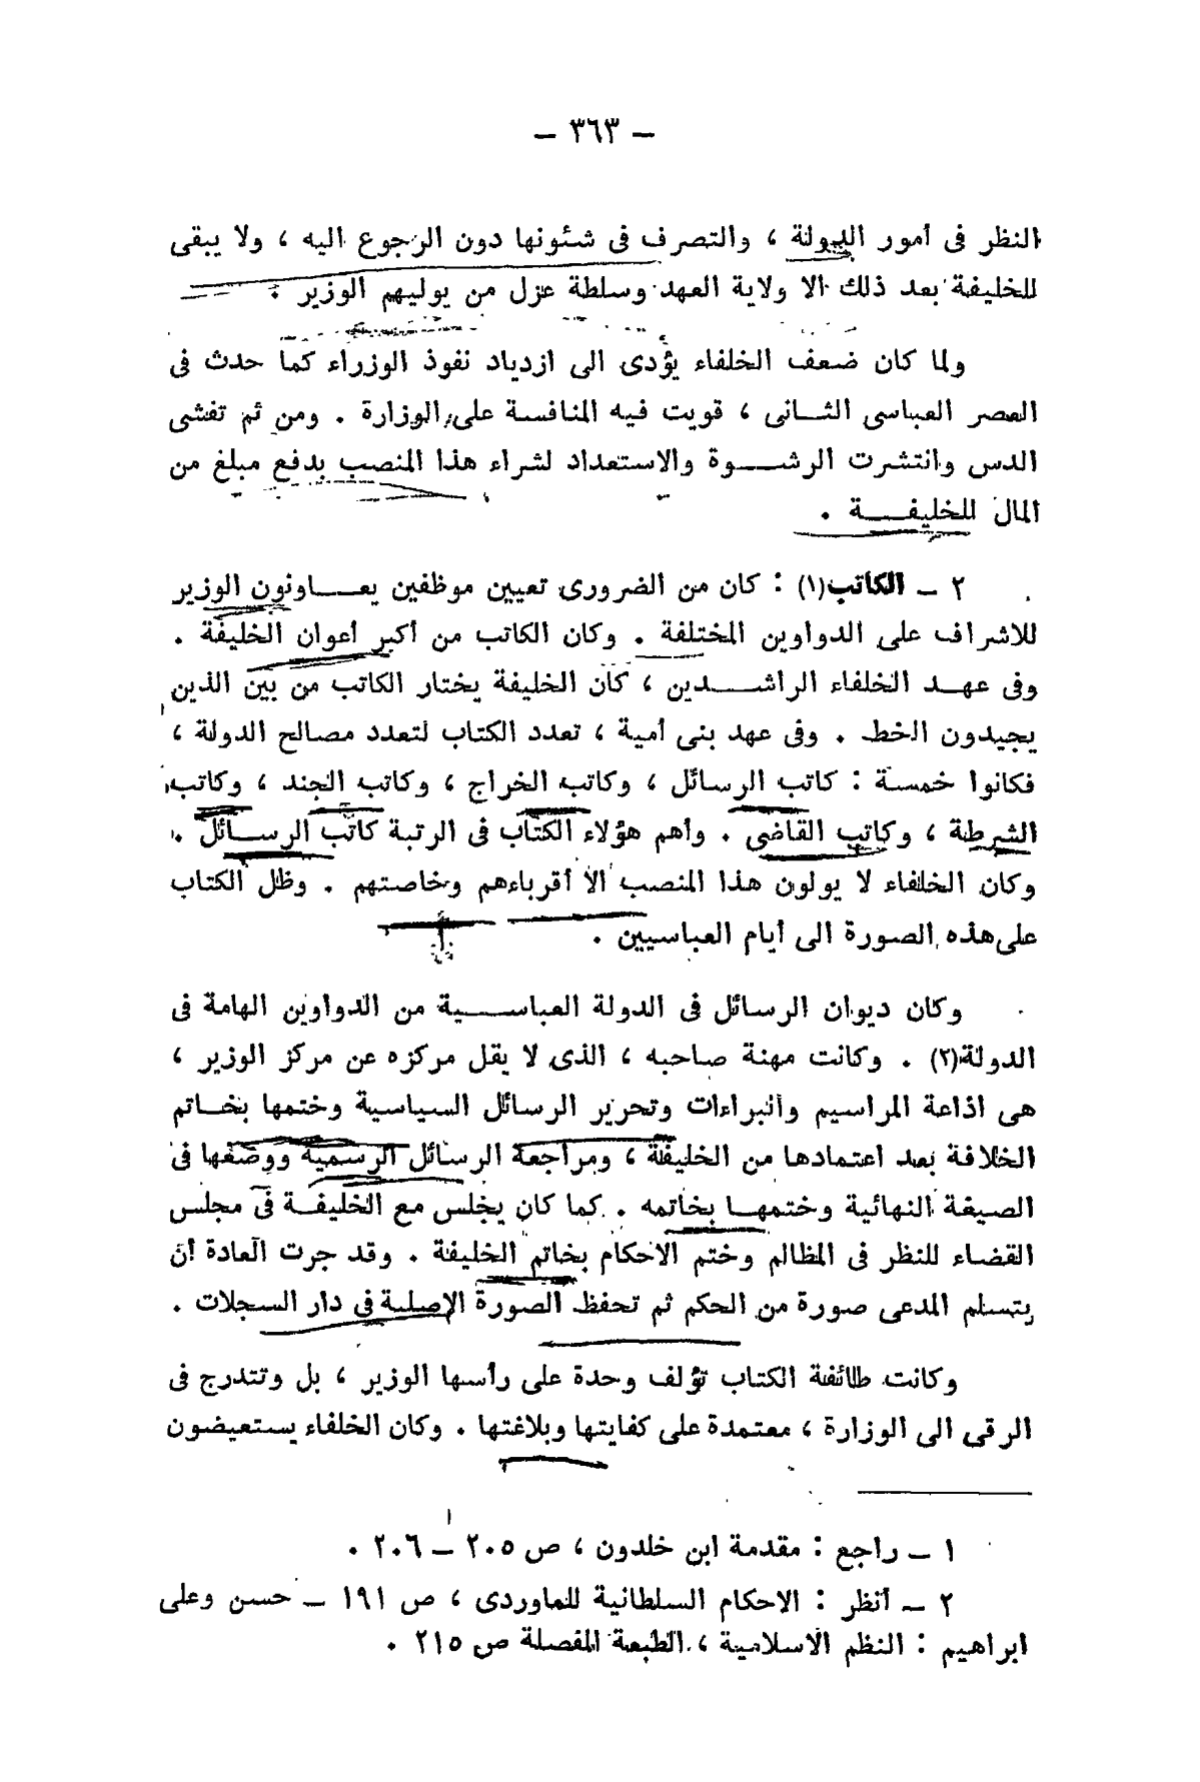 — ٣٦٣ —
النظر فى أمور الدولة ، والتصرف فى شئونها دون الرجوع اليه ، ولا يبقى
للخليفة بعد ذلك الا ولاية العهد وسلطة عزل من يوليهم الوزير .
ولما كان ضعف الخلفاء يؤدى الى ازدياد نفوذ الوزراء كما حدث فى
العصر العباسى الثانى ، قويت فيه المنافسة على الوزارة . ومن ثم تفشى
الدس وانتشرت الرشوة والاستعداد لشراء هذا المنصب بدفع مبلغ من
المال للخليفة .
٢ – الكاتب(١) : كان من الضرورى تعيين موظفين يعاونون الوزير
للاشراف على الدواوين المختلفة . وكان الكاتب من أكبر أعوان الخليفة .
وفى عهد الخلفاء الراشدين ، كان الخليفة يختار الكاتب من بين الذين
يجيدون الخط . وفى عهد بنى أمية ، تعدد الكتاب لتعدد مصالح الدولة ،
فكانوا خمسة : كاتب الرسائل ، وكاتب الخراج ، وكاتب الجند ، وكاتب
الشرطة ، وكاتب القاضى . وأهم هؤلاء الكتاب فى الرتبة كاتب الرسائل .
وكان الخلفاء لا يولون هذا المنصب الا أقرباءهم وخاصتهم . وظل الكتاب
على هذه الصورة الى أيام العباسيين .
وكان ديوان الرسائل فى الدولة العباسية من الدواوين الهامة فى
الدولة(٢) . وكانت مهنة صاحبه ، الذى لا يقل مركزه عن مركز الوزير ،
هى اذاعة المراسيم والبراءات وتحرير الرسائل السياسية وختمها بخاتم
الخلافة بعد اعتمادها من الخليفة ، ومراجعة الرسائل الرسمية ووضعها فى
الصيغة النهائية وختمها بخاتمه . كما كان يجلس مع الخليفة فى مجلس
القضاء للنظر فى المظالم وختم الاحكام بخاتم الخليفة . وقد جرت العادة أن
يتسلم المدعى صورة من الحكم ثم تحفظ الصورة الاصلية فى دار السجلات .
وكانت طائفة الكتاب تؤلف وحدة على رأسها الوزير ، بل وتتدرج فى
الرقى الى الوزارة ، معتمدة على كفايتها وبلاغتها . وكان الخلفاء يستعيضون
١ – راجع : مقدمة ابن خلدون ، ص ٢٠٥ – ٢٠٦ .
٢ – أنظر : الاحكام السلطانية للماوردى ، ص ١٩١ – حسن وعلى
ابراهيم : النظم الاسلامية ، الطبعة المفصلة ص ٢١٥ .